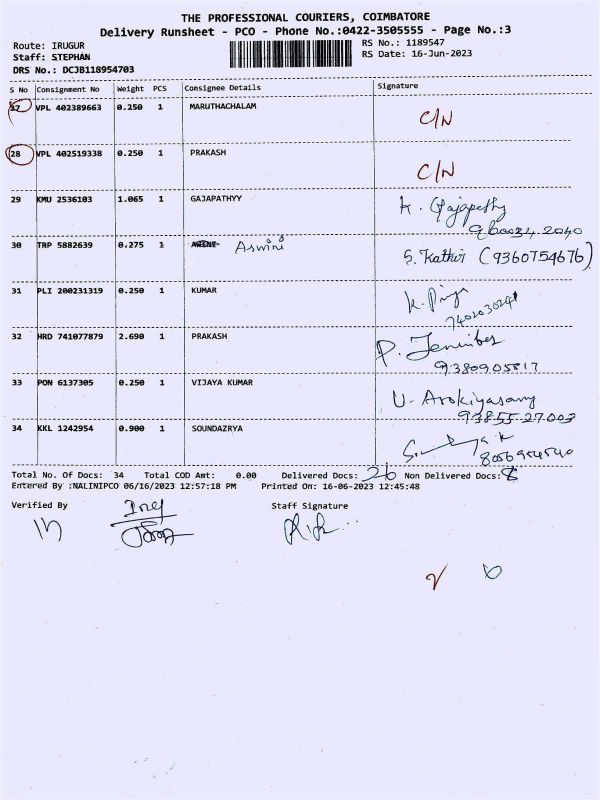 THE PROFESSIONAL COURIERS, COIMBATORE
Delivery Runsheet - PCO - Phone No.:0422-3505555 - Page No.:3
Route: IRUGUR RS No.: 1189547
Staff: STEPHAN RS Date: 16-Jun-2023
DRS No.: DCJB118954703
S No Consignment No Weight PCS Consignee Details Signature
27 VPL 402389663 0.250 1 MARUTHACHALAM C/N
28 VPL 402519338 0.250 1 PRAKASH C/N
29 KMU 2536103 1.065 1 GAJAPATHYY K. Gajapathy
30 TRP 5882639 0.275 1 Aswini S. Kathir (9360754676)
31 PLI 200231319 0.250 1 KUMAR K. Priya
32 HRD 741077879 2.690 1 PRAKASH P. Jenniber
9380905817
33 PON 6137305 0.250 1 VIJAYA KUMAR U. Arokiyasamy
93855 27003
34 KKL 1242954 0.900 1 SOUNDAZRYA
Total No. Of Docs: 34 Total COD Amt: 0.00 Delivered Docs: 26 Non Delivered Docs: 8
Entered By :NALINIPCO 06/16/2023 12:57:18 PM Printed On: 16-06-2023 12:45:48
Verified By Staff Signature